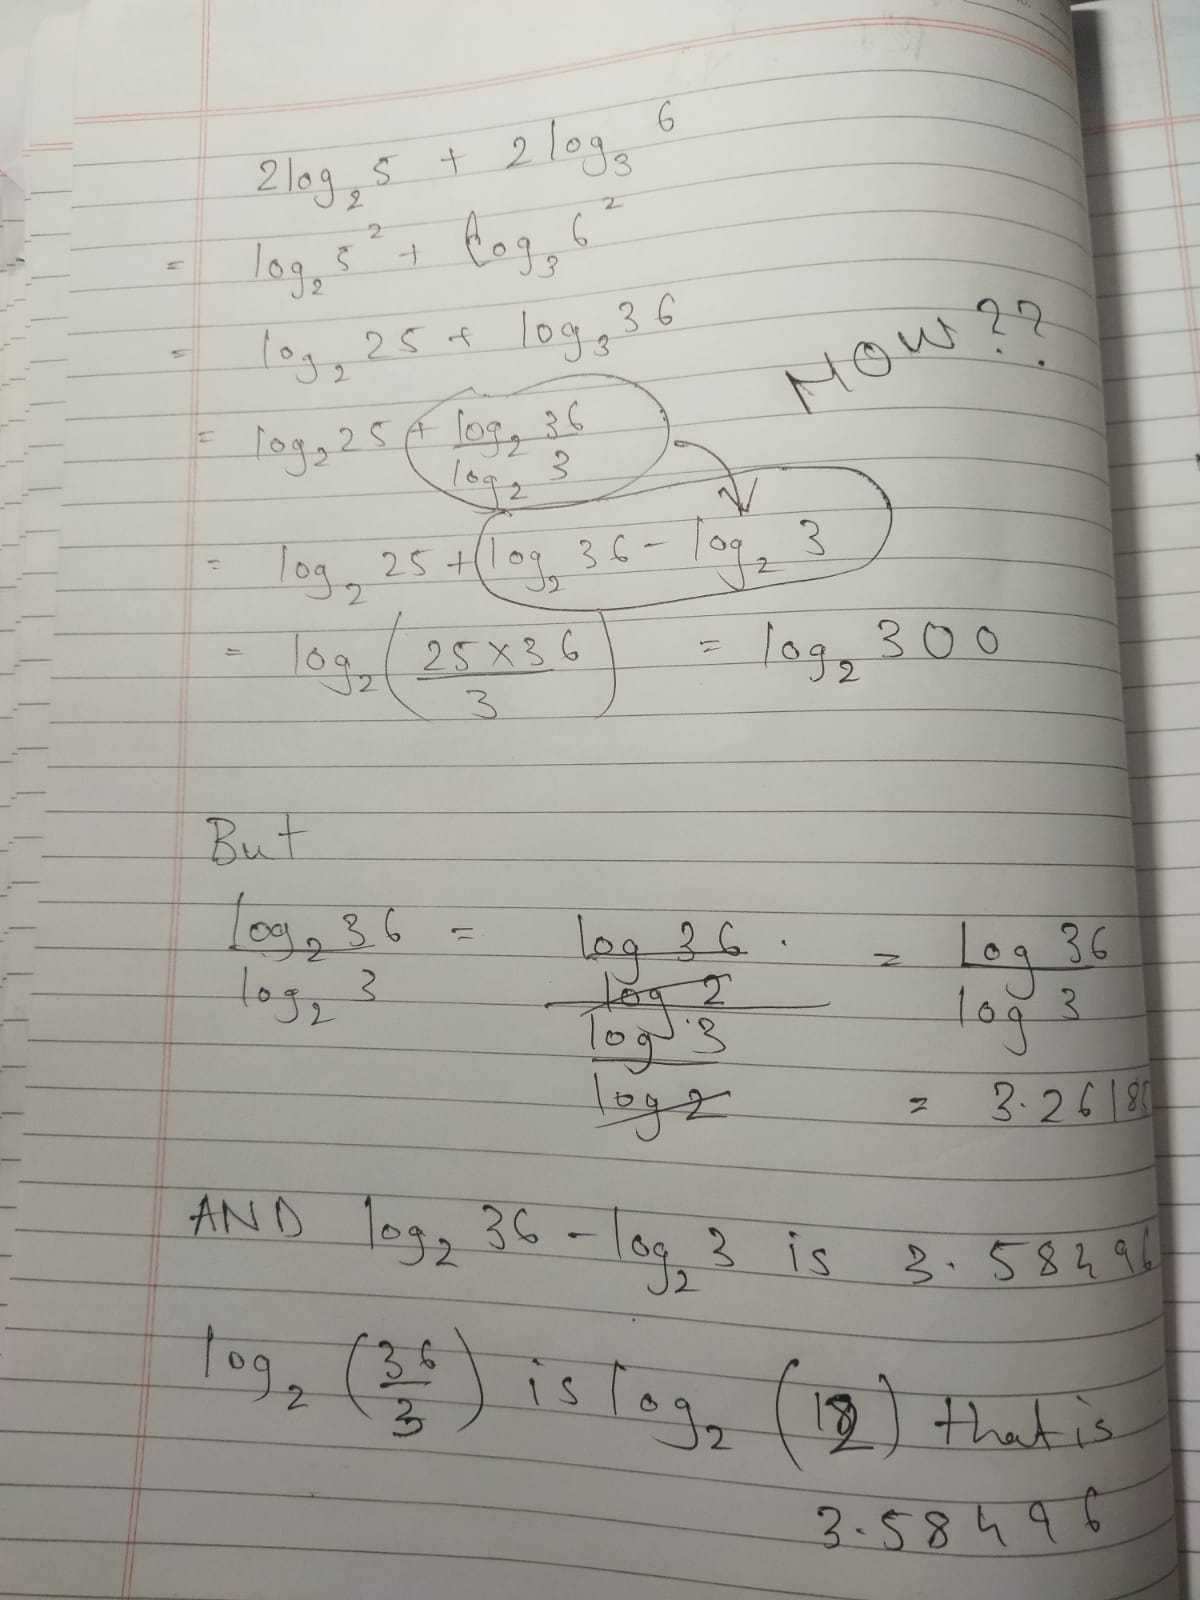 2log₂5 + 2log₃6
= log₂5² + log₃6²
= log₂25 + log₃36
HOW??
= log₂25 + log₂36
log₂3
= log₂25 + log₂36 - log₂3
= log₂(25×36 = log₂300
3)
But
log₂36 = log 36 = Log 36
log₂3 log 2 log 3
log 3
log 2 = 3.2618
AND log₂36 - log₂3 is 3.58496
log₂(36 is log₂(12) that is
3)
3.58496